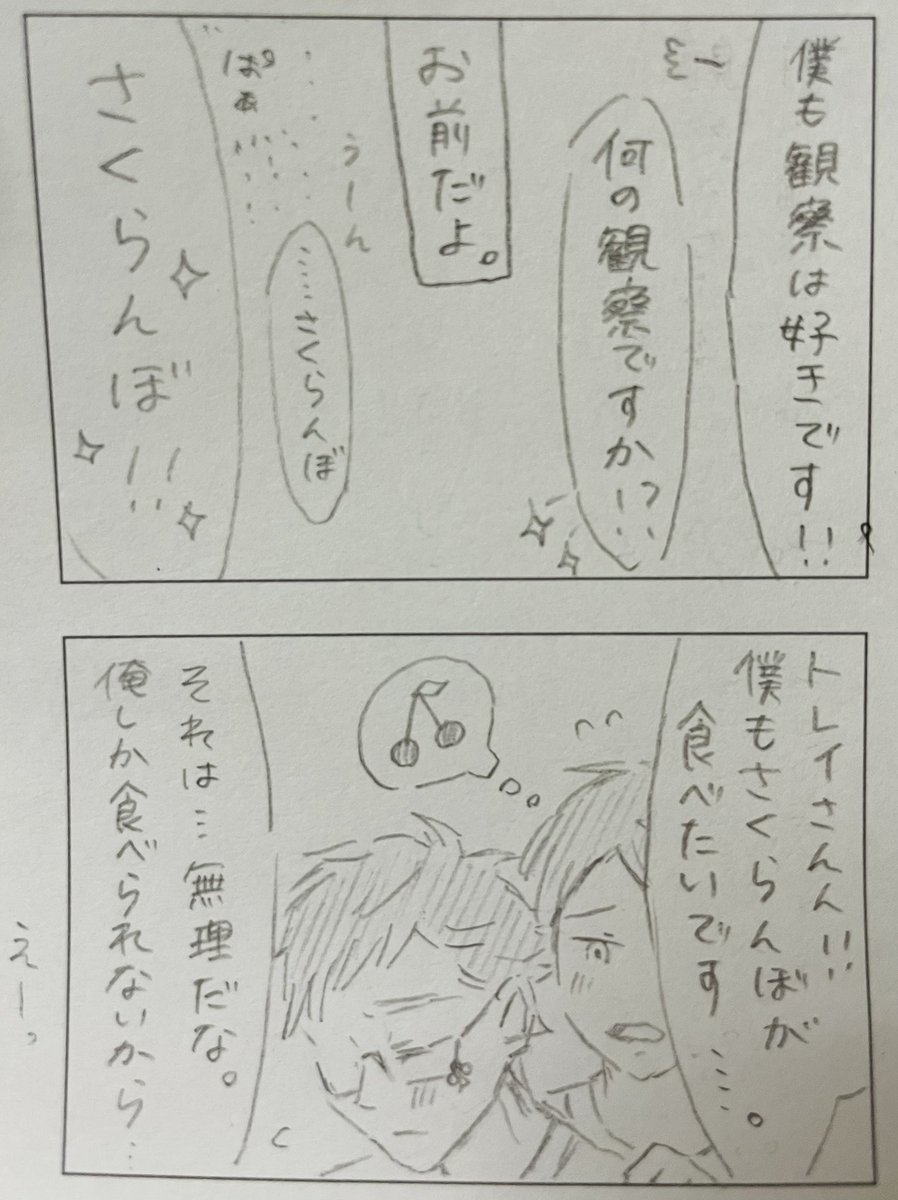 僕も観察は好きです!!
何の観察ですか!?
お前だよ。
うーん
……さくらんぼ
ぱぁ
さくらんぼ!!
トレイさんん!!
僕もさくらんぼが
食べたいです……。
それは…無理だな。
俺しか食べられないから…
えーっ